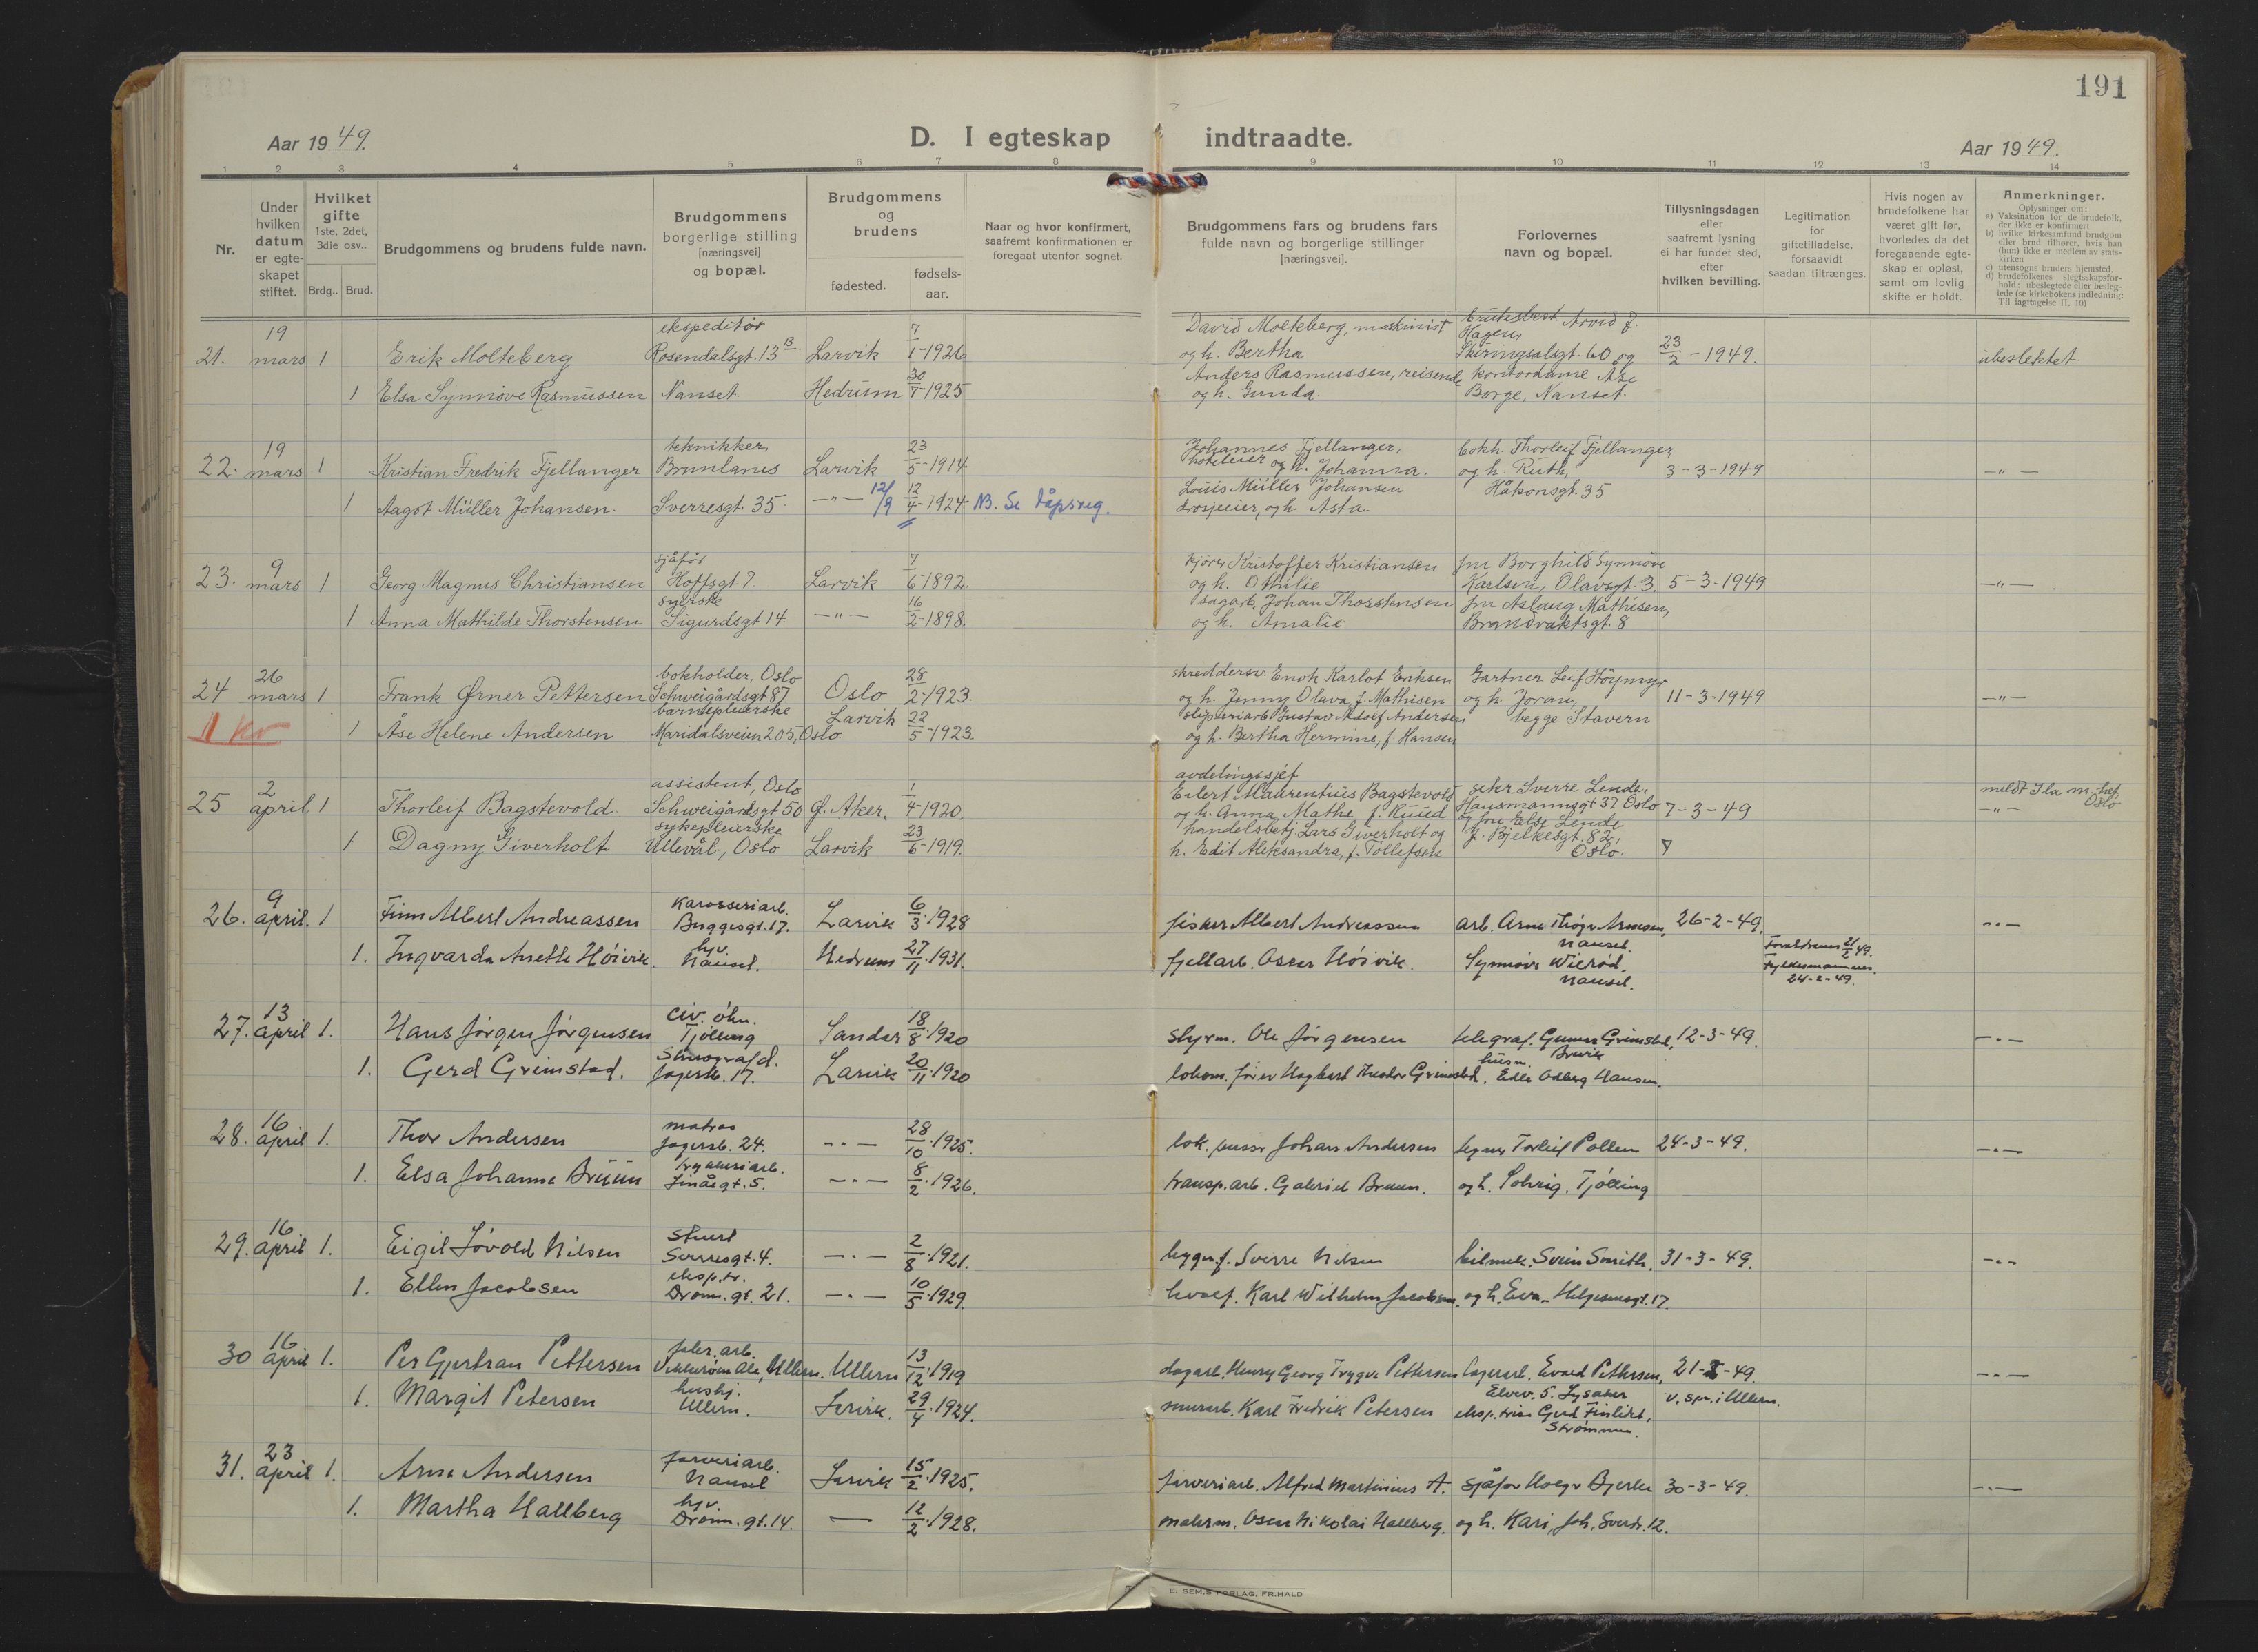 191
Aar 1949.
D. I egteskap indtraadte.
Aar 1949.
1 2 3 4 5 6 7 8 9 10 11 12 13 14
Nr.
Under hvilken datum er egteskapet stiftet.
Hvilket gifte 1ste, 2det, 3die osv..
Brdg.. Brud.
Brudgommens og brudens fulde navn.
Brudgommens borgerlige stilling [næringsvei] og bopæl.
Brudgommens og brudens
fødested.
fødsels-aar.
Naar og hvor konfirmert, saafremt konfirmationen er foregaat utenfor sognet.
Brudgommens fars og brudens fars fulde navn og borgerlige stillinger [næringsvei].
Forlovernes navn og bopæl.
Tillysningsdagen eller saafremt lysning ei har fundet sted, efter hvilken bevilling.
Legitimation for giftetilladelse, forsaavidt saadan tiltrænges.
Hvis nogen av brudefolkene har været gift før, hvorledes da det foregaaende egteskap er opløst, samt om lovlig skifte er holdt.
Anmerkninger.
Oplysninger om:
a) Vaksination for de brudefolk, der ikke er konfirmert
b) hvilke kirkesamfund brudgom eller brud tilhører, hvis han (hun) ikke er medlem av statskirken
c) utensogns bruders hjemsted.
d) brudefolkenes slegtsskapsforhold: ubeslegtede eller beslegtede (se kirkebokens indledning: Til iagttagelse II. 10)
21. 19 mars 1 Erik Molteberg ekspeditør Rosendalsgt. 13 B Larvik 7/1-1926 David Molteberg, maskinist og h. Bertha Arvid J. Hagen, Skiringsalsgt. 60 og 23/2-1949. ubeslektet
1 Elsa Synnøve Rasmussen Nanset. Hedrum 30/7-1925 Anders Rasmussen, reisende og h. Gunda. kontordame Åse Borge, Nanset.
22. 19 mars 1 Kristian Fredrik Fjellanger tekniker, Brunlanes Larvik 23/5-1914 Johannes Fjellanger, hoteleier og h. Johanna. bokh. Thorleif Fjellanger og h. Ruth, 3-3-1949 -"-
1 Aagot Müller Johansen. Sverresgt. 35 -"- 12/9 12/4-1924 NB. Se dåpsreg. Louis Müller Johansen drosjeeier, og h. Asta. Håkonsgt. 35
23. 9 mars 1 Georg Magnus Christiansen sjåfør Hoffsgt 7 Larvik 7/6-1892 kjører Kristoffer Kristiansen og h. Othilie fru Borghild Synnøve Karlsen, Olavsgt. 3. 5-3-1949 -"-
1 Anna Mathilde Thorstensen syerske Sigurdsgt 14. -"- 16/2-1898. sagarb. Johan Thorstensen og h. Amalie fru Aslaug Mathisen, Brandvaktsgt. 8
24 26 mars 1 Frank Ørner Pettersen bokholder, Oslo Schweigårdsgt 87 Oslo 28/2-1923. skreddersv. Enok Karlot Eriksen og h. Jenny Olava f. Mathisen Gartner Leif Höymyr og h. Joran, 11-3-1949 -"-
1 kr 1 Åse Helene Andersen barnepleierske Maridalsveien 205, Oslo Larvik 22/5-1923. sliperiarb Gustav Adolf Andersen og h. Bertha Hermine, f. Hansen begge Stavern
25 2 april 1 Thorleif Bagstevold. assistent, Oslo Schweigårdsgt 50 Ø. Aker. 1/4-1920. avdelingssjef Eilert Maurentius Bagstevold og h. Anna Mathe f. Ruud sekr. Sverre Lende, Hausmannsgt 37 Oslo og fru Else Lende 7-3-49 meldt Ila m. hef Oslo -"-
1 Dagny Giverholt sykepleierske Ullevål, Oslo Larvik 23/6-1919. handelsbetj. Lars Giverholt og h. Edit Aleksandra, f. Tollefsen J. Bjelkesgt. 82, Oslo. 7
26. 9 april. 1 Finn Albert Andreassen Karosseriarb. Buggesgt. 17. Larvik 6/3.1928 fisker Albert Andreassen arb. Arne Thögr Arnesen, Nanset. 26-2-49.
1. Ingvarda Anette Höivik. hjv. Nanset. Hedrum 27/11.1931. fjellarb. Oscar Höivik. Synnöve Wieröd, Nanset. Foreldrenes 21/2 49. Fylkesmannens 24-2-49.
27. 13 april 1. Hans Jørgen Jørgensen civ. økn. Tjölling Sandar 18/8.1920 styrm. Ole Jørgensen telegraf. Gunnar Grimstad, Brevik 12-3-49.
1. Gerd Grimstad. Stenografd. Jegersb. 17. Larvik 20/11.1920 lokom. fører Hagbart Theodor Grimstad. husm. Edle Odberg Hansen.
28. 16 april 1. Thor Andersen matros Jegersb. 24. -"- 28/10.1925. lok. pusser Johan Andersen Torleif Pollen 24-3-49.
1. Elsa Johanne Bruun trykkeriarb. Jinåegt. 5. -"- 8/2.1926. transp.arb. Gabriel Bruun. og h. Solveig. Tjölling
29. 16 april 1. Eigil Jóvold Nilsen Stuert Sverresgt. 4. -"- 2/8.1921. bygn.f. Sverre Nilsen bilmek. Svein Smith, 31-3-49.
1. Ellen Jacobsen eksp.tr. Dronn. gt. 21. -"- 10/5.1929. hvalf. Karl Wilhelm Jacobsen, og h. Eva - Helgesensgt. 17.
30 16 april 1. Per Gjertran Pettersen fabr. arb. Vækkerøen Alle, Ullern. Ullern 13/12.1919 dagarb. Henry Georg Trygve Pettersen lagerarb. Evald Pettersen, Elvev. 5. Lysaker 21-3-49. v. spr. i Ullern.
1. Margit Petersen hushj. Ullern. Larvik. 29/4.1924. murarb. Karl Fredrik Petersen eksp.trise Gerd Finlidt, Strömmen.
31. 23 april 1. Arne Andersen farveriarb. Nanset Larvik 15/2.1925. farveriarb. Alfred Martinius A. sjåfør Holger Bjerke 30-3-49.
1. Martha Hallberg hjv. Dronn. gt. 14. 12/2.1928. malerm. Oscar Nikolai Hallberg. og h. Kari, Joh. Sverdr. 12.
E. SEM.S FORLAG, FR.HALD